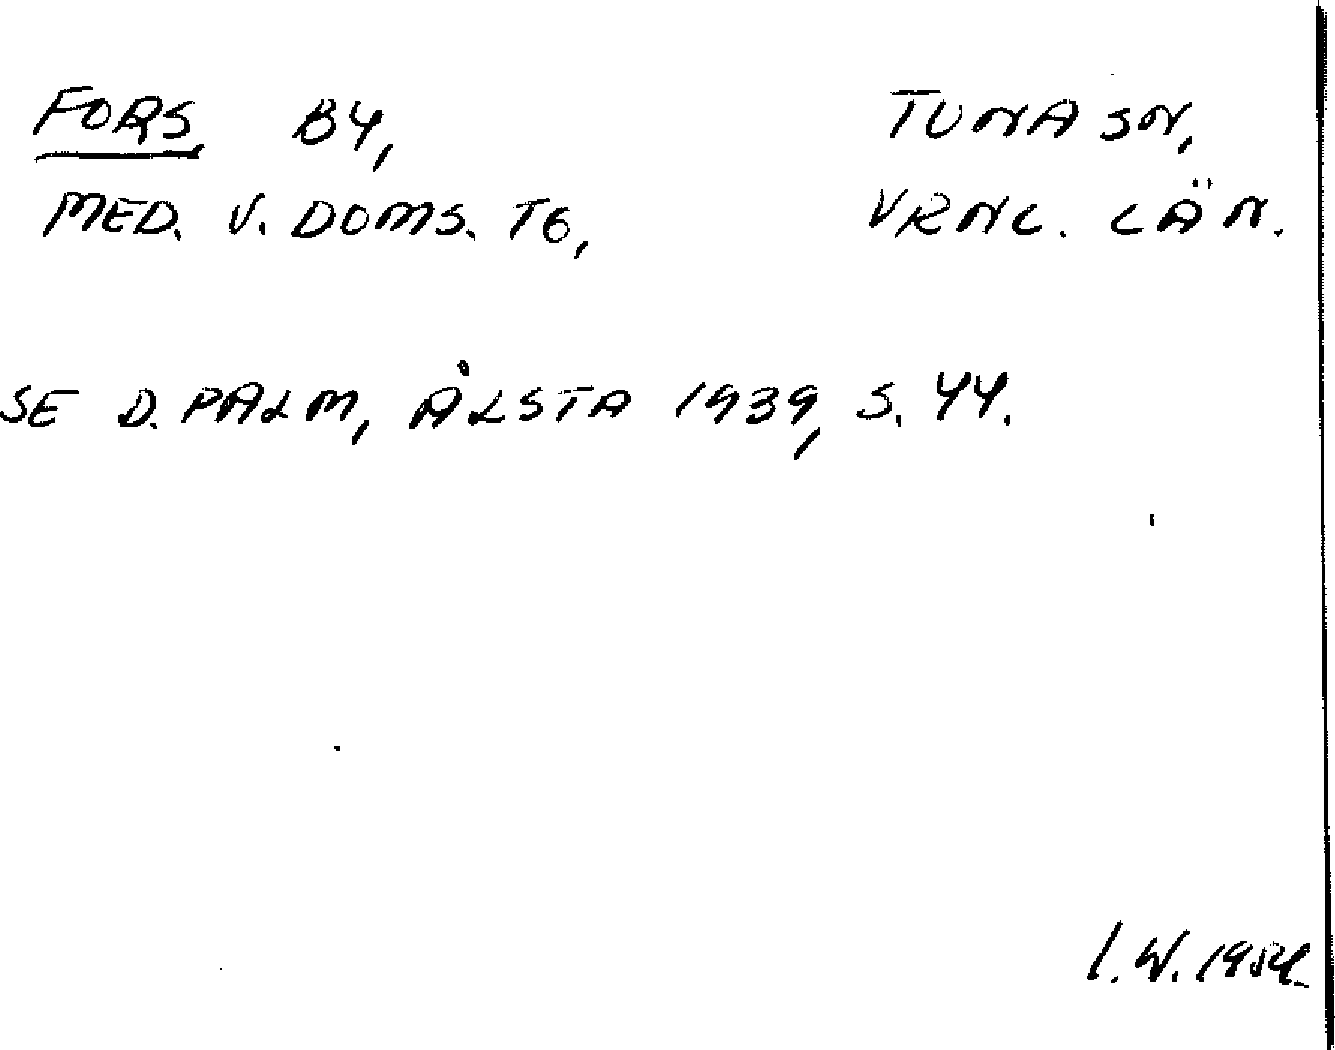 FORS, BY, TUNA SN,
MED. V. DOMS. TG, VRNL. LÄN.
SE D. PALM, ÅLSTA 1939, S. 44.
I. W. 1954.